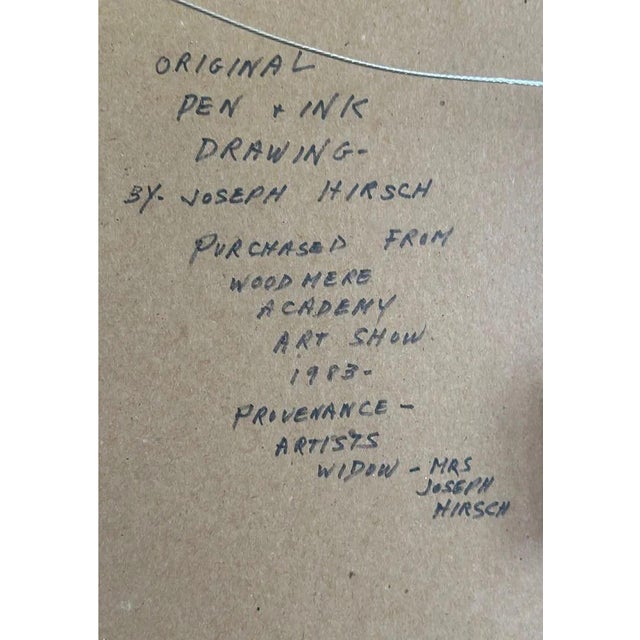 ORIGINAL
PEN + INK
DRAWING-
BY- JOSEPH HIRSCH
PURCHASED FROM
WOODMERE
ACADEMY
ART SHOW.
1983-
PROVENANCE -
ARTISTS
WIDOW - MRS
JOSEPH
HIRSCH